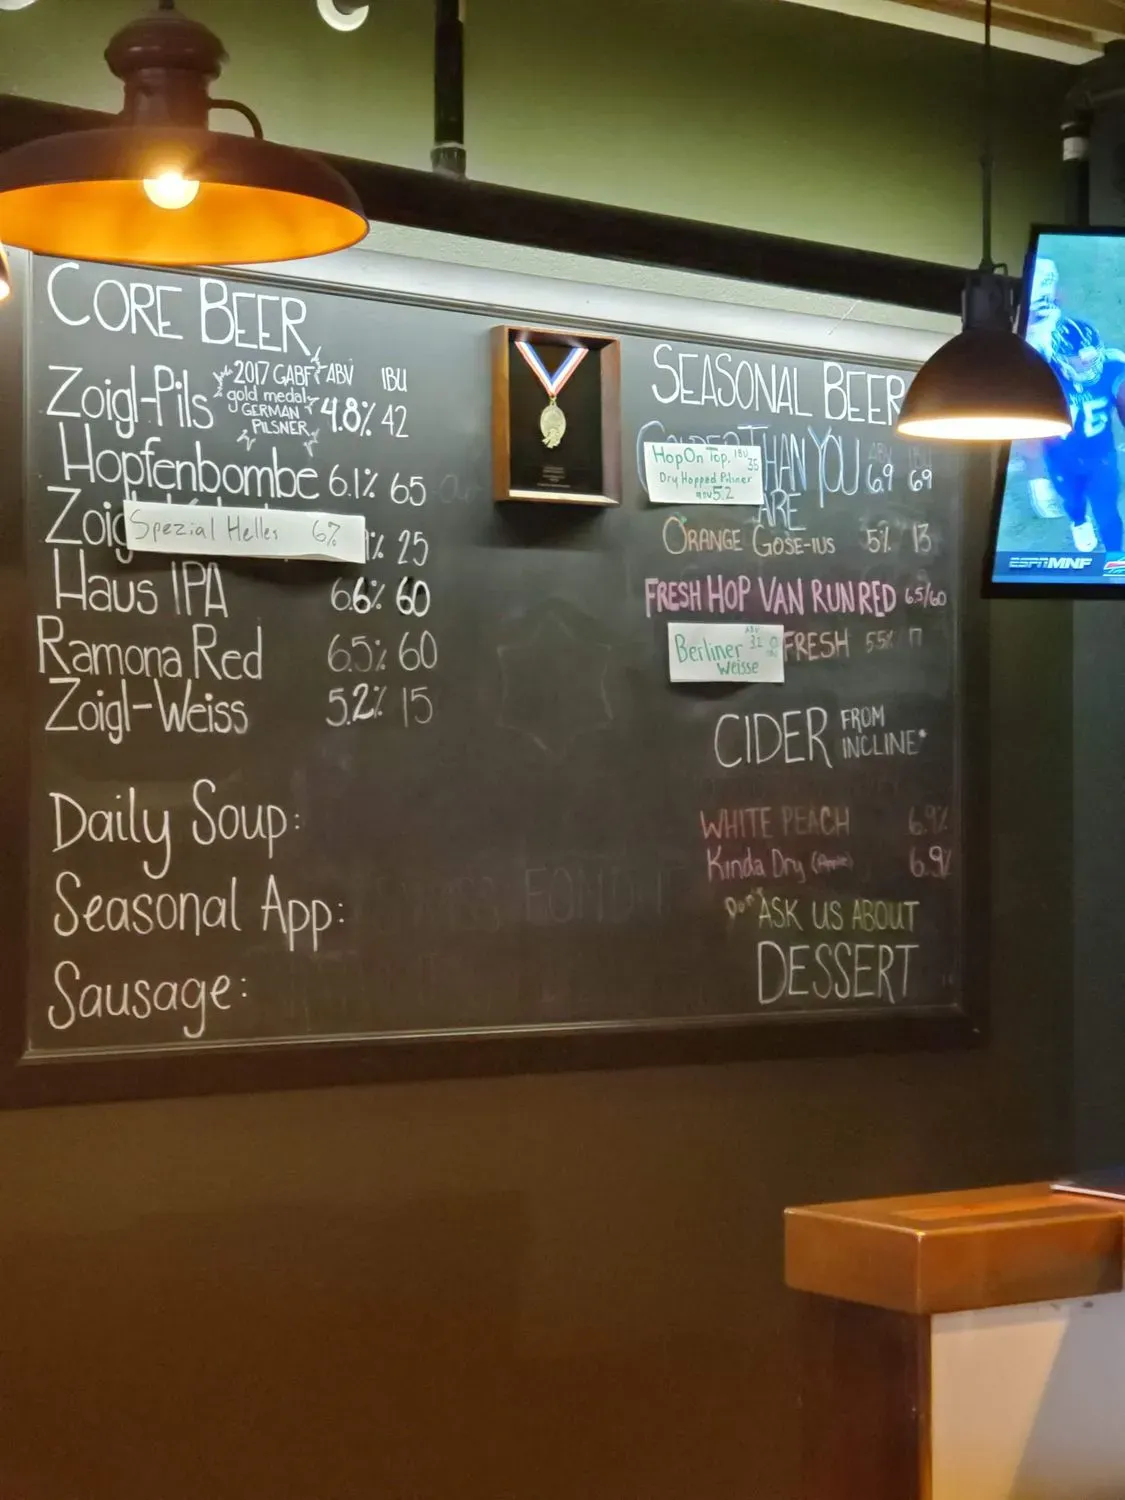 CORE BEER
2017 GABF ABV IBU
Zoigl-Pils gold medal 4.8% 42
GERMAN
PILSNER
Hopfenbombe 6.1% 65
Zoig
Spezial Helles 6%
% 25
Haus IPA 6.6% 60
Ramona Red 6.5% 60
Zoigl-Weiss 5.2% 15
Daily Soup:
Seasonal App:
Sausage:
SEASONAL BEER
THAN YOU 6.9 69
ARE
Hop On Top. IBU 35
Dry Hopped Pilsner
ABV 5.2
ORANGE GOSE-IUS 5% 13
FRESH HOP VAN RUN RED 6.5/60
Berliner ABV 3.1
Weisse
FRESH 5.5% 17
CIDER FROM
INCLINE*
WHITE PEACH 6.9%
Kinda Dry (Apple) 6.9%
ASK US ABOUT
DESSERT
ESPN MNF